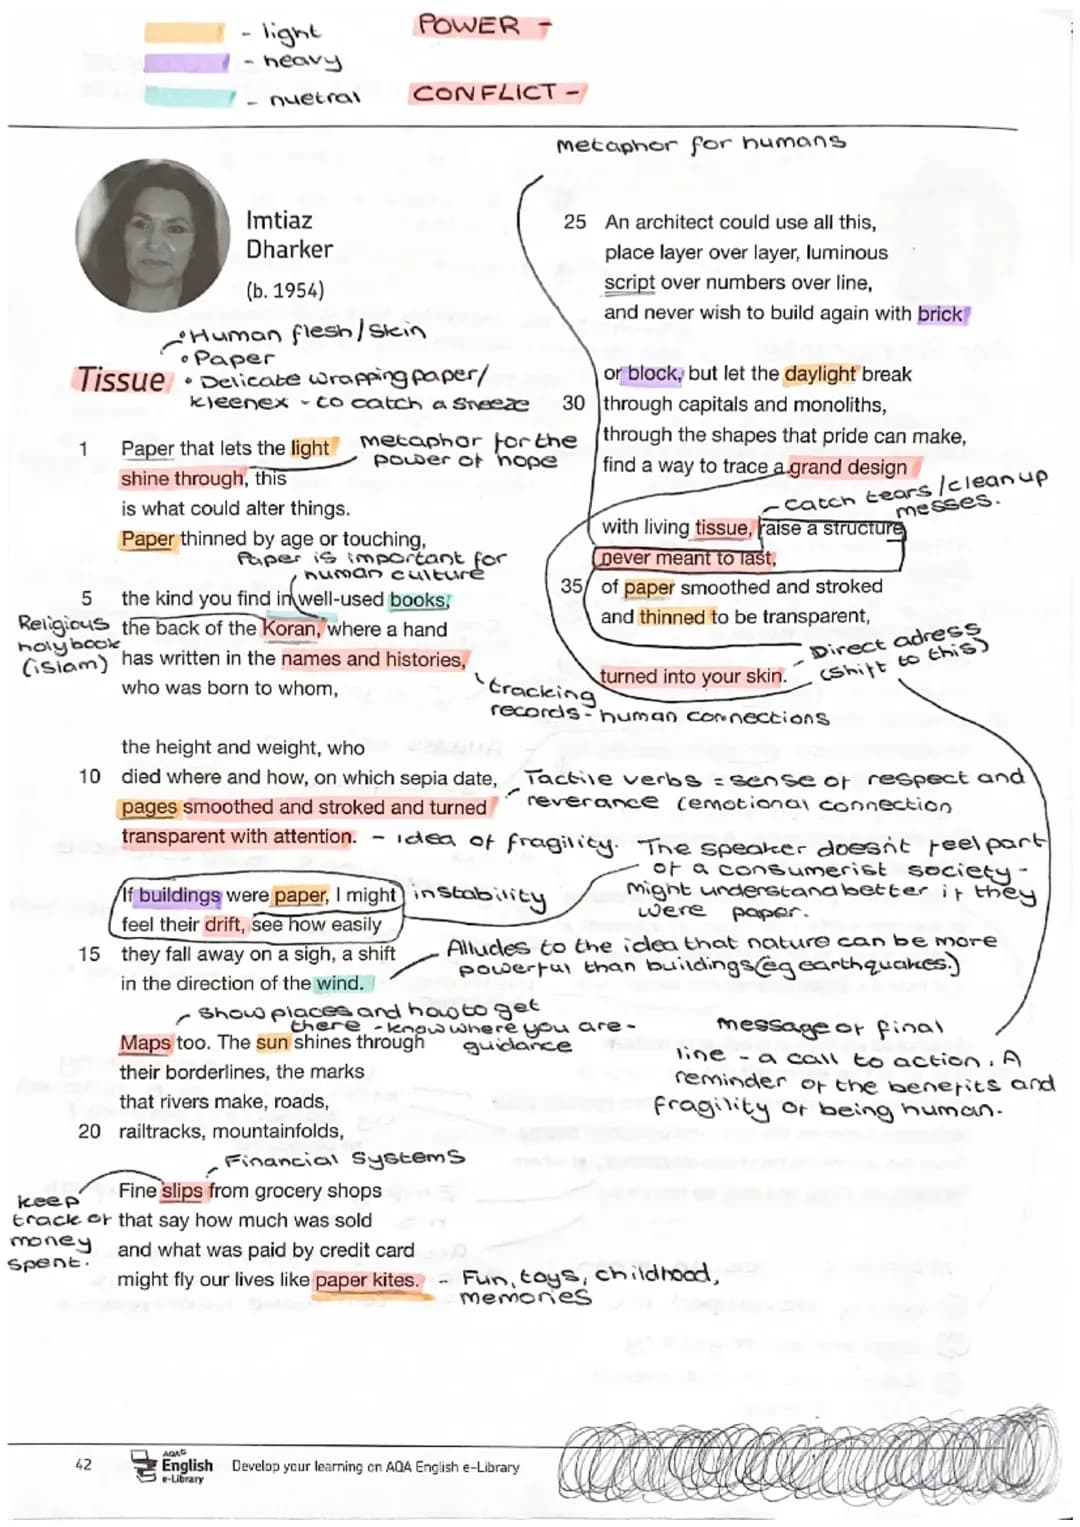 - light
POWER -
- heavy
- nuetral
CONFLICT -
metaphor for humans
Imtiaz
Dharker
(b. 1954)
• Human flesh/Skin
• Paper
Tissue
• Delicate wrapping paper/
kleenex - to catch a sneeze
1 Paper that lets the light
metaphor for the
power of hope
shine through, this
is what could alter things.
Paper thinned by age or touching,
Paper is important for
human culture
5 the kind you find in well-used books,
Religious
holy book
(islam)
the back of the Koran, where a hand
has written in the names and histories,
who was born to whom,
tracking
records - human connections
the height and weight, who
10 died where and how, on which sepia date,
pages smoothed and stroked and turned
transparent with attention.
Tactile verbs = sense of respect and
reverance (emotional connection
- idea of fragility.
If buildings were paper, I might
feel their drift, see how easily
instability
The speaker doesn't feel part
of a consumerist society -
might understand better if they
were paper.
15 they fall away on a sigh, a shift
in the direction of the wind.
Alludes to the idea that nature can be more
powerful than buildings (eg earthquakes.)
- Show places and how to get
there - know where you are -
guidance
Maps too. The sun shines through
their borderlines, the marks
that rivers make, roads,
20 railtracks, mountainfolds,
Financial systems
Fine slips from grocery shops
that say how much was sold
and what was paid by credit card
might fly our lives like paper kites.
keep
track of
money
spent.
- Fun, toys, childhood,
memories
25 An architect could use all this,
place layer over layer, luminous
script over numbers over line,
and never wish to build again with brick
or block, but let the daylight break
30 through capitals and monoliths,
through the shapes that pride can make,
find a way to trace a grand design
- Catch tears/clean up
messes.
with living tissue, raise a structure
never meant to last,
35 of paper smoothed and stroked
and thinned to be transparent,
turned into your skin.
- Direct adress
(shift to this)
message of final
line - a call to action. A
reminder of the benefits and
fragility of being human.
42
AQA
English
e-Library
Develop your learning on AQA English e-Library